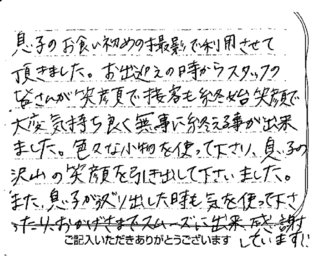 息子のお食い初めの撮影で利用させて
頂きました。お出迎えの時からスタッフの
皆さんが笑顔で接客も終始笑顔で
大変気持ち良く無事に終える事が出来
ました。色々な小物を使って下さり、息子の
沢山の笑顔を引き出して下さいました。
また、息子がぐずり出した時も気を使って下さ
ったり、おかげさまでスムーズに出来、感謝
しています!!
ご記入いただきありがとうございます